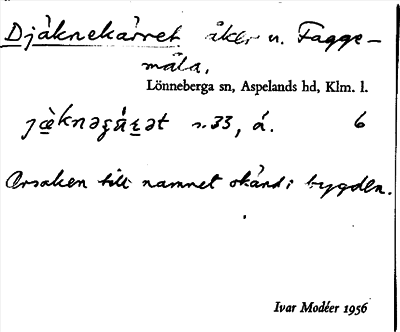 Djäknekärret åker u. Fagge-
måla,
Lönneberga sn, Aspelands hd, Klm. l.
s. 33, á. 6
Orsaken till namnet okänd i bygden.
Ivar Modéer 1956